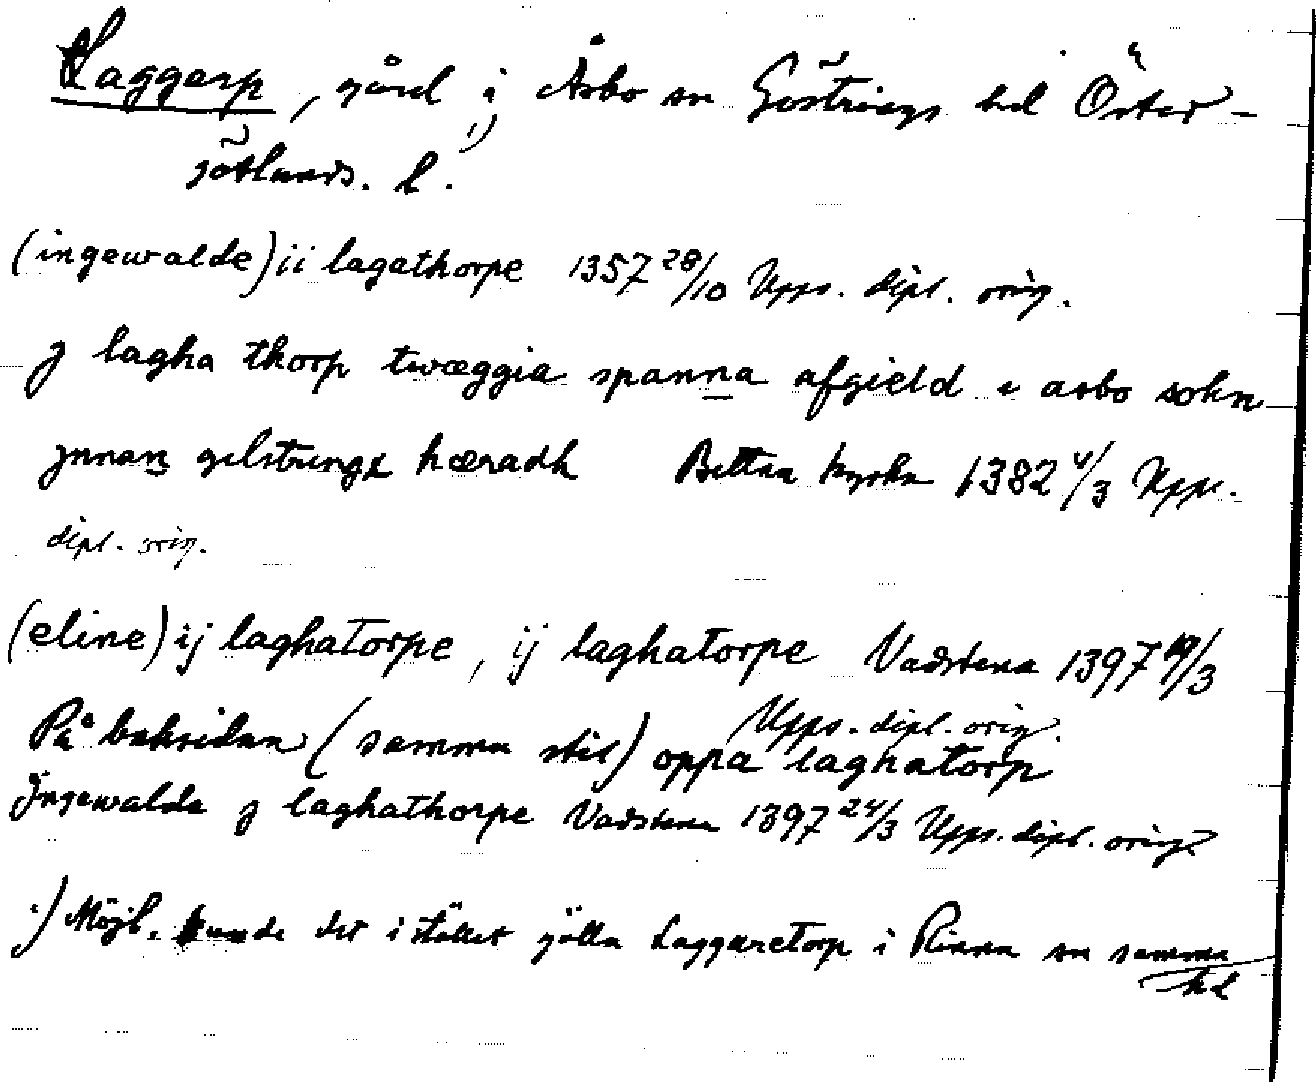 Laggarp, gård i Åsbo sn Göstrings hd Öster-
götlands. l. 1)
(ingewalde) ii lagathorpe 1357 28/10 Upps. dipl. orig.
j lagha thorp twæggia spanna afgield i asbo sokn
jnnan gilstrings hæradh Bettna kyrka 1382 4/3 Upps.
dipl. orig.
(eline) ij laghatorpe, ij laghatorpe Vadstena 1397 /3
Upps. dipl. orig.
På baksidan (samma stil) oppa laghatorp
Jngewalde j laghathorpe Vadstena 1397 24/3 Upps. dipl. orig.
1) Möjl. kunde det i stället gälla Laggaretorp i Rinna sn samma
hd